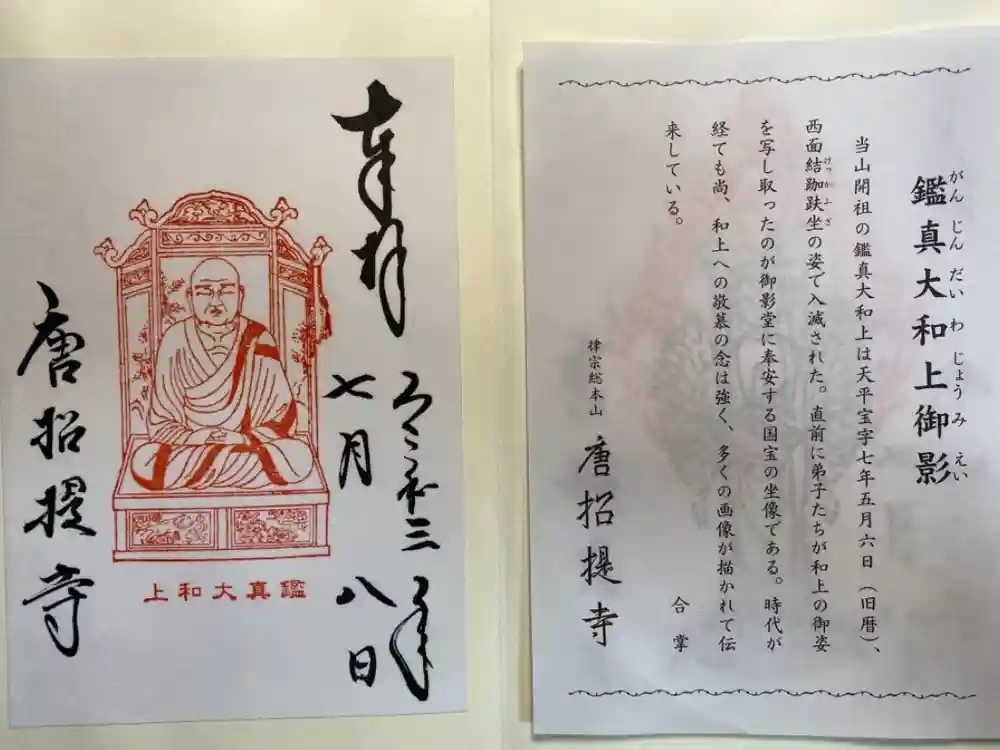 がんじんだいわじょうみえい
鑑真大和上御影
当山開祖の鑑真大和上は天平宝字七年五月六日（旧暦）、
けっかふざ
西面結跏趺坐の姿で入滅された。直前に弟子たちが和上の御姿
を写し取ったのが御影堂に奉安する国宝の坐像である。時代が
経ても尚、和上への敬慕の念は強く、多くの画像が描かれて伝
来している。
合掌
律宗総本山 唐招提寺
奉拝
令和三年
七月八日
鑑真大和上
唐招提寺